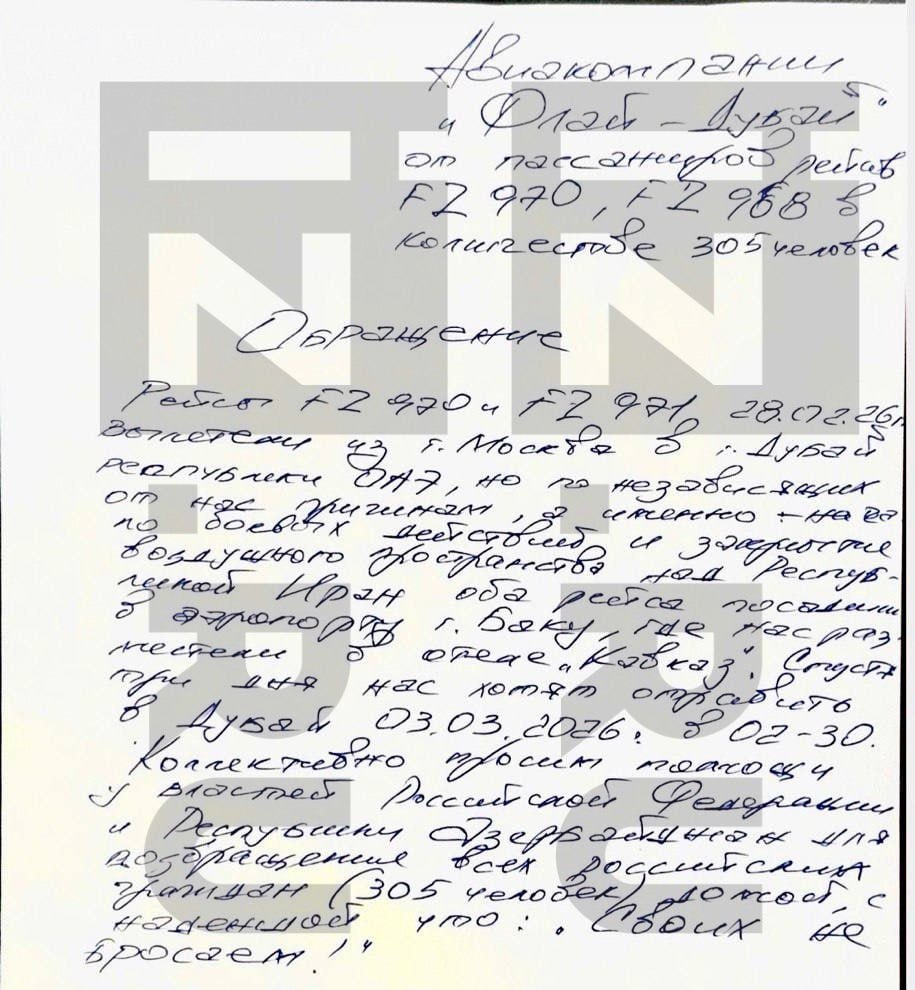 Авиакомпании
„Флай-Дубай"
от пассажиров рейсов
FZ 970, FZ 968 в
количестве 305 человек
Обращение
Рейсы FZ 970 и FZ 971, 28.02.26г
вылетели из г. Москва в г. Дубай
республики ОАЭ, но по независящих
от нас причинам, а именно - нача
ло боевых действий и закрытие
воздушного пространства над Респуб-
ликой Иран оба рейса посадили
в аэропорту г. Баку, где нас раз-
местели в отеле „Кавказ". Спустя
три дня нас хотят отравить
в Дубай 03.03.2026г. в 02-30.
Коллективно просим помощи
у властей Российской Федерации
и Республики Азербайджан для
возвращение всех российских
граждан (305 человек) домой, с
надеждой что: „Своих не
бросаем!"
NEWS.RU